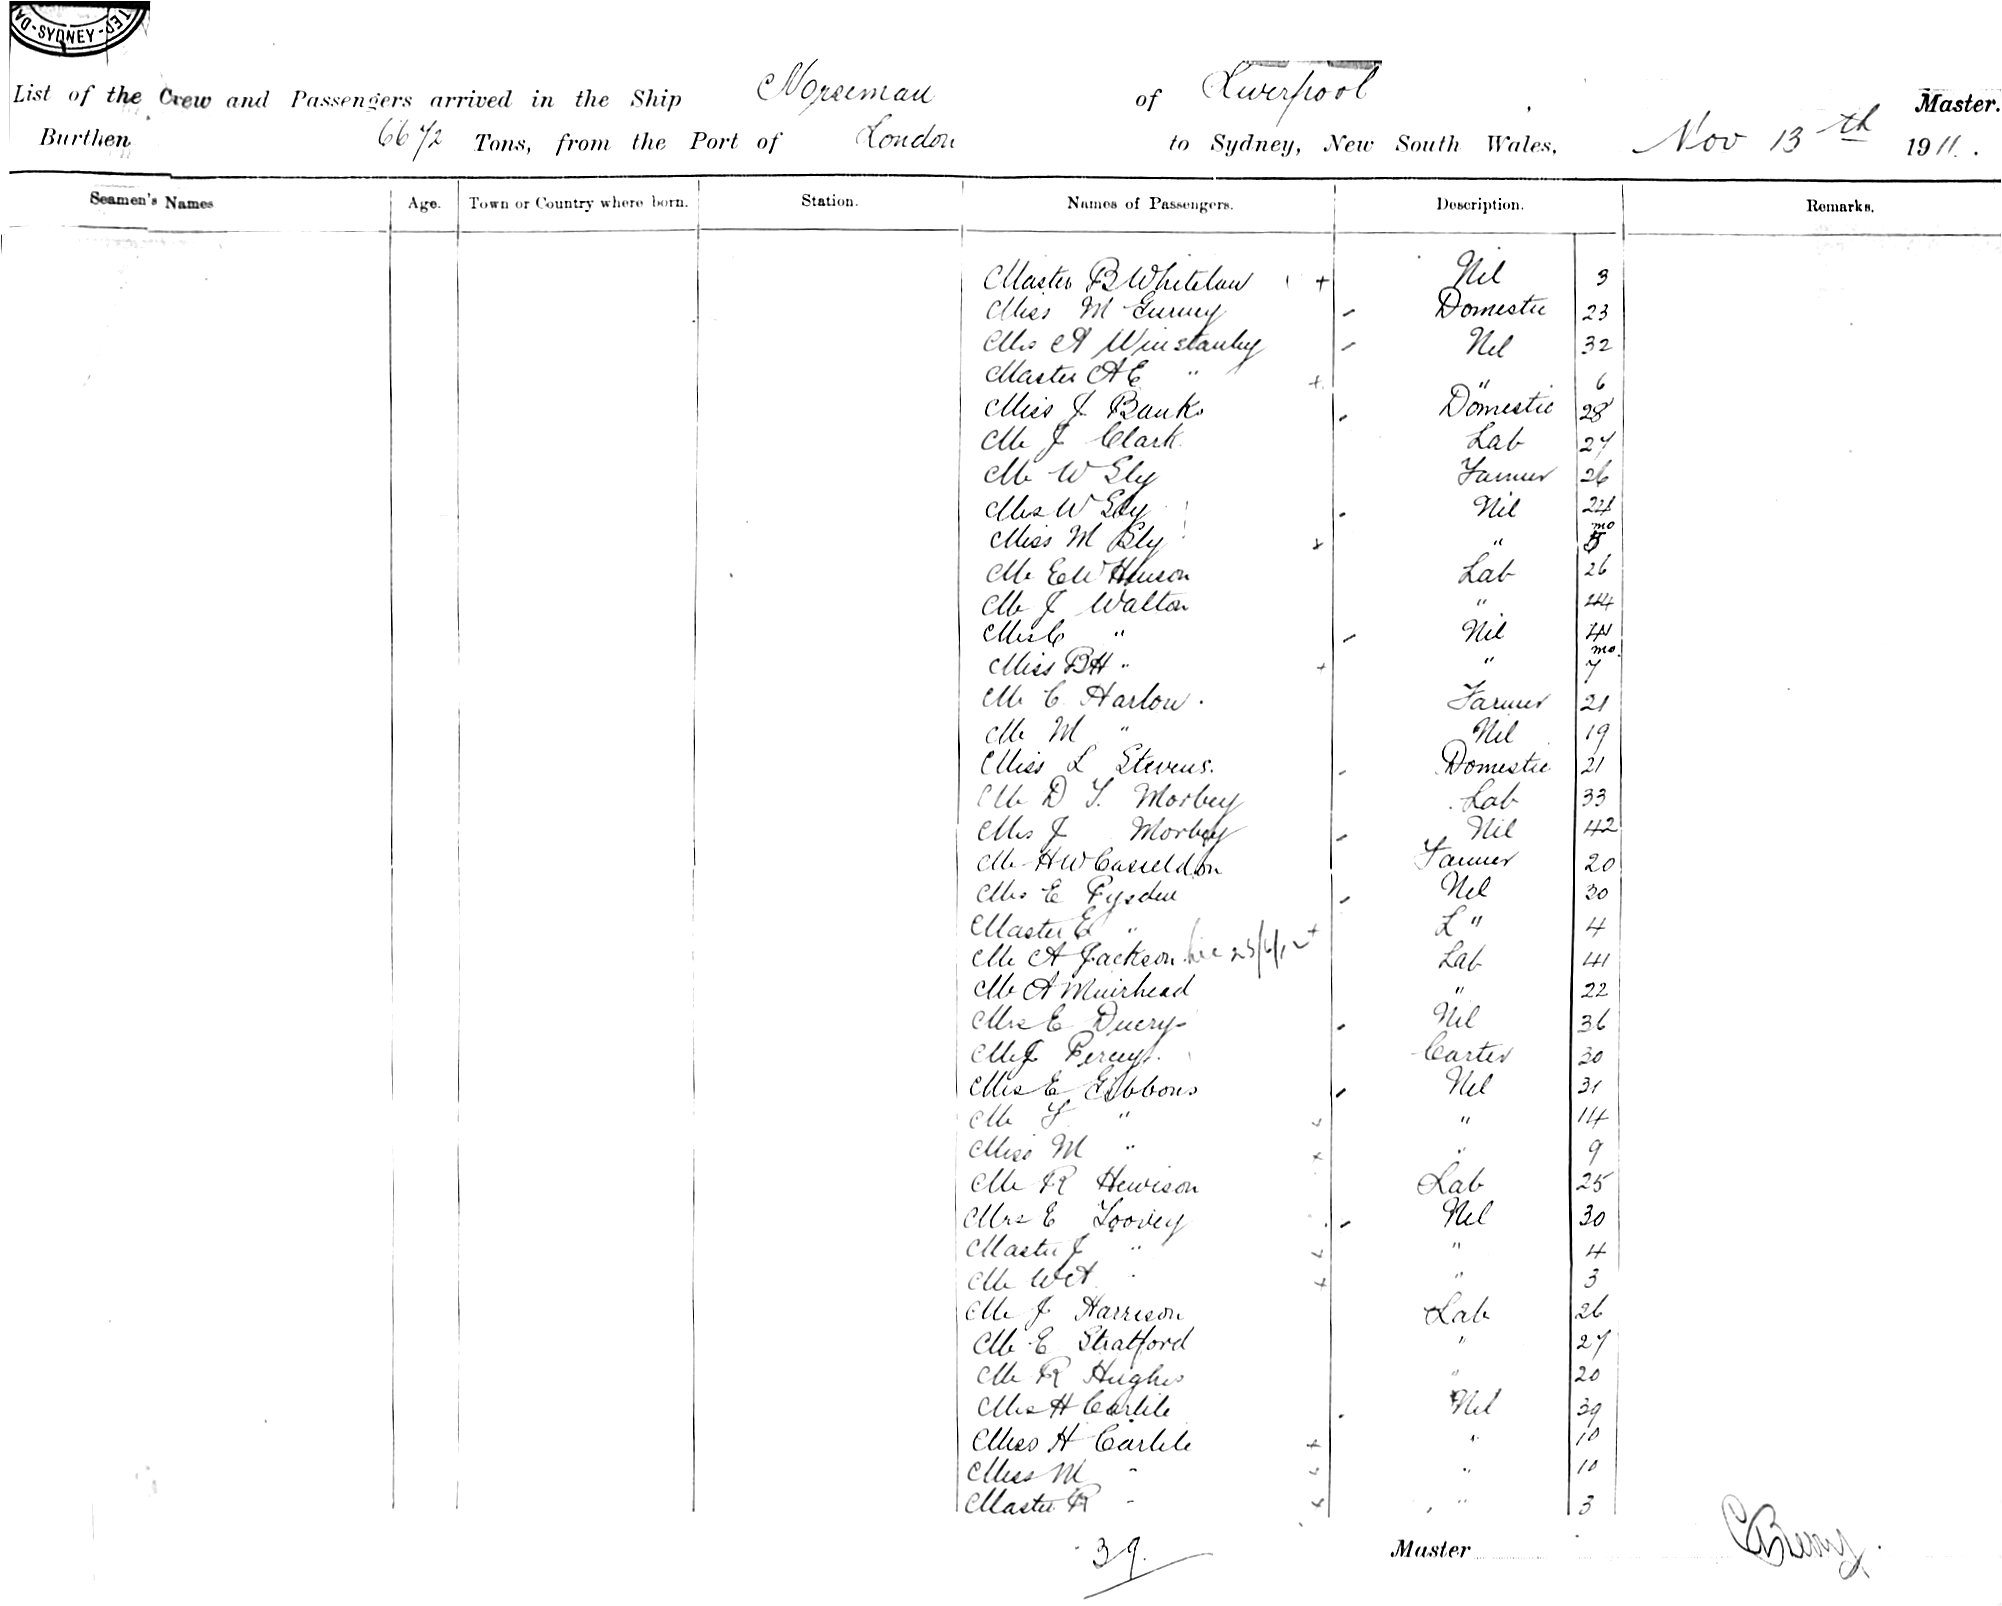 -SYDNEY-
List of the Crew and Passengers arrived in the Ship Norseman of Liverpool Master.
Burthen 6672 Tons, from the Port of London to Sydney, New South Wales, Nov 13th 1911.
Seamen's Names Age. Town or Country where born. Station. Names of Passengers. Description. Remarks.
Master B Whitelaw + Nil 3
Miss M Gurney Domestic 23
Mrs A Winstanley Nil 32
Master A E " + " 6
Miss J Banks Domestic 28
Mr J Clark Lab 27
Mr W Ely Farmer 26
Mrs W Ely Nil 24
Miss M Ely + " mo
Mr E W Henson Lab 26
Mr J Walton " 44
Mrs C " Nil 41
Miss B H " + " mo. 7
Mr C Harlow. Farmer 21
Mr M " Nil 19
Miss L Stevens. Domestic 21
Mr D T. Morbey Lab 33
Mrs J Morbey Nil 42
Mr H W Casseldon Farmer 20
Mrs E Fysdew Nil 30
Master E " + " 4
Mr A Jackson 23/6/12 Lab 41
Mr A Muirhead " 22
Mrs E Duery Nil 36
Mr J Percy. Carter 30
Mrs E Gibbons Nil 31
Mr F " + " 14
Miss M " + " 9
Mr R Hewison Lab 25
Mrs E Toovey Nil 30
Master J " + " 4
Mr W A " + " 3
Mr J Harrison Lab 26
Mr E Stratford " 27
Mr R Hughes " 20
Mrs H Carlile Nil 39
Miss H Carlile + " 10
Miss M " + " 10
Master R " + " 3
39.
Master